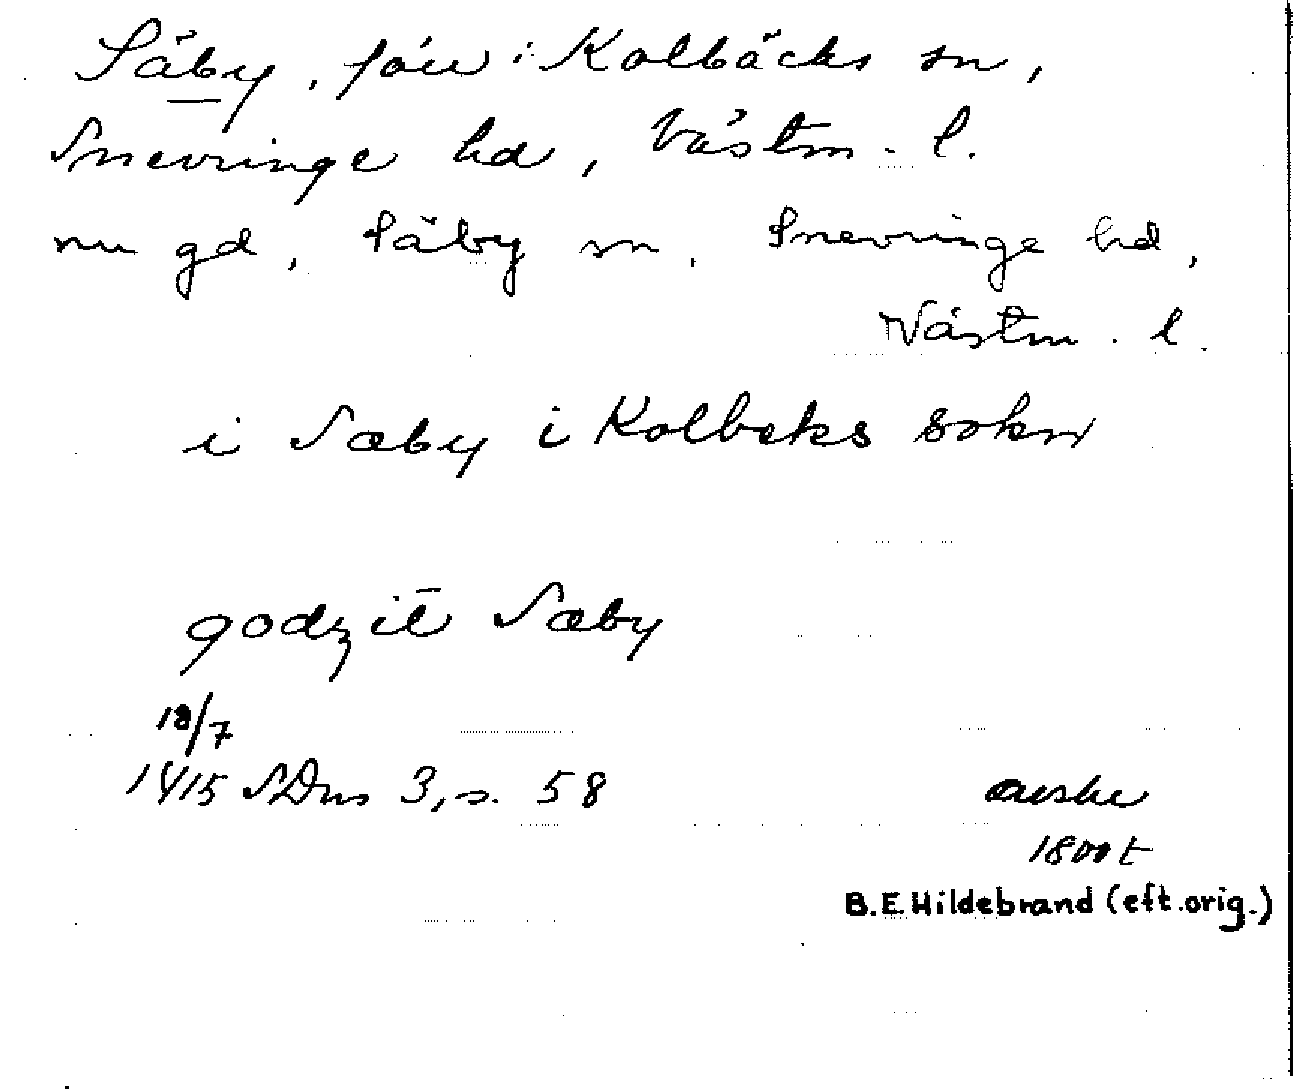 Säby, förr i Kolbäcks sn,
Snevringe hd, Västm. l.
nu gd, Säby sn, Snevringe hd,
Västm. l.
i Sæby i Kolbeks sokn
godz it Sæby
18/7
1415 SDns 3, s. 58
avskr
1800 t
B.E. Hildebrand (eft. orig.)